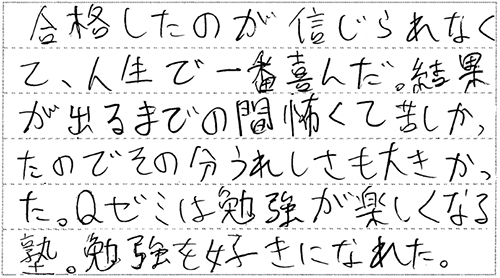 合格したのが信じられなく
て、人生で一番喜んだ。結果
が出るまでの間怖くて苦しかっ
たのでその分うれしさも大きかっ
た。Qゼミは勉強が楽しくなる
塾。勉強を好きになれた。